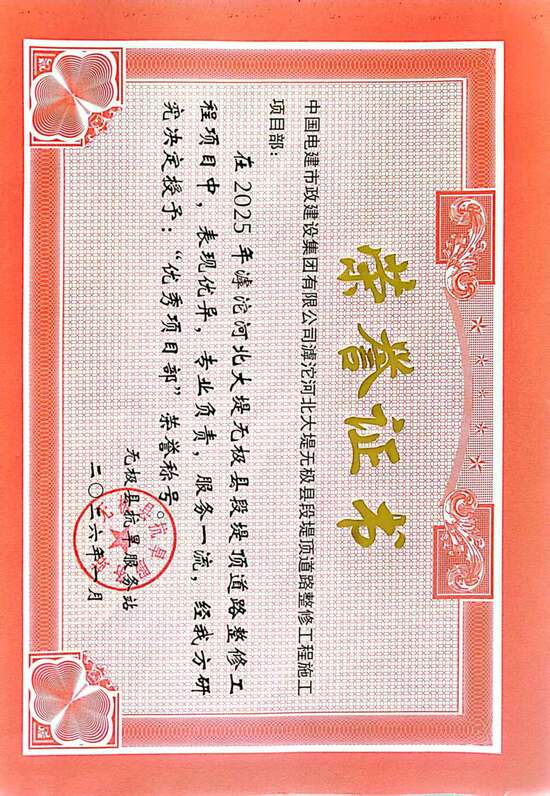 荣誉证书
中国电建市政建设集团有限公司滹沱河北大堤无极县段堤顶道路整修工程施工
项目部：
在2025年滹沱河北大堤无极县段堤顶道路整修工
程项目中，表现优异，专业负责，服务一流，经我方研
究决定授予：“优秀项目部”荣誉称号。
无极县抗旱服务站
二〇二六年一月